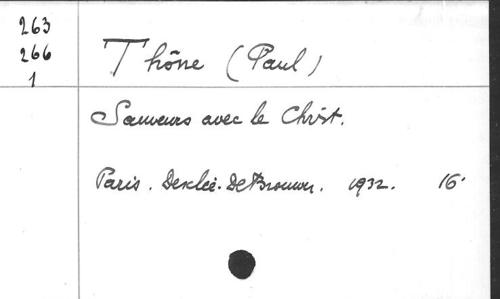 263
266
1
Thône (Paul)
Sauveurs avec le Christ.
Paris. Desclée-De Brouwer. 1932. 16°